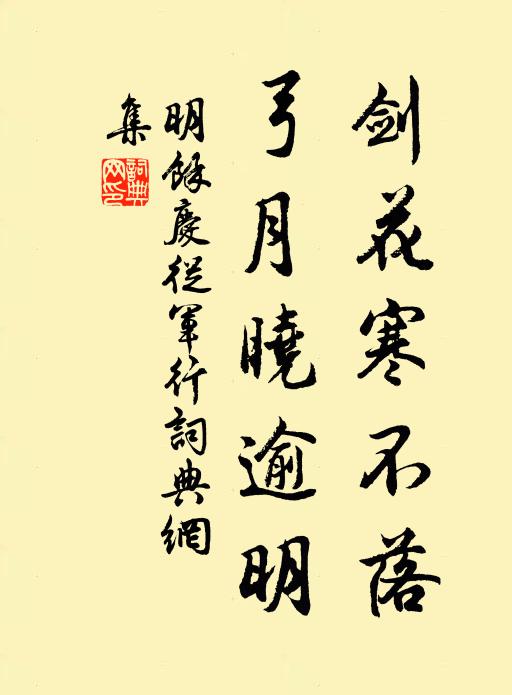 剑花寒不落
弓月曉逾明
明餘慶從軍行詞典網
集
詞典
网印